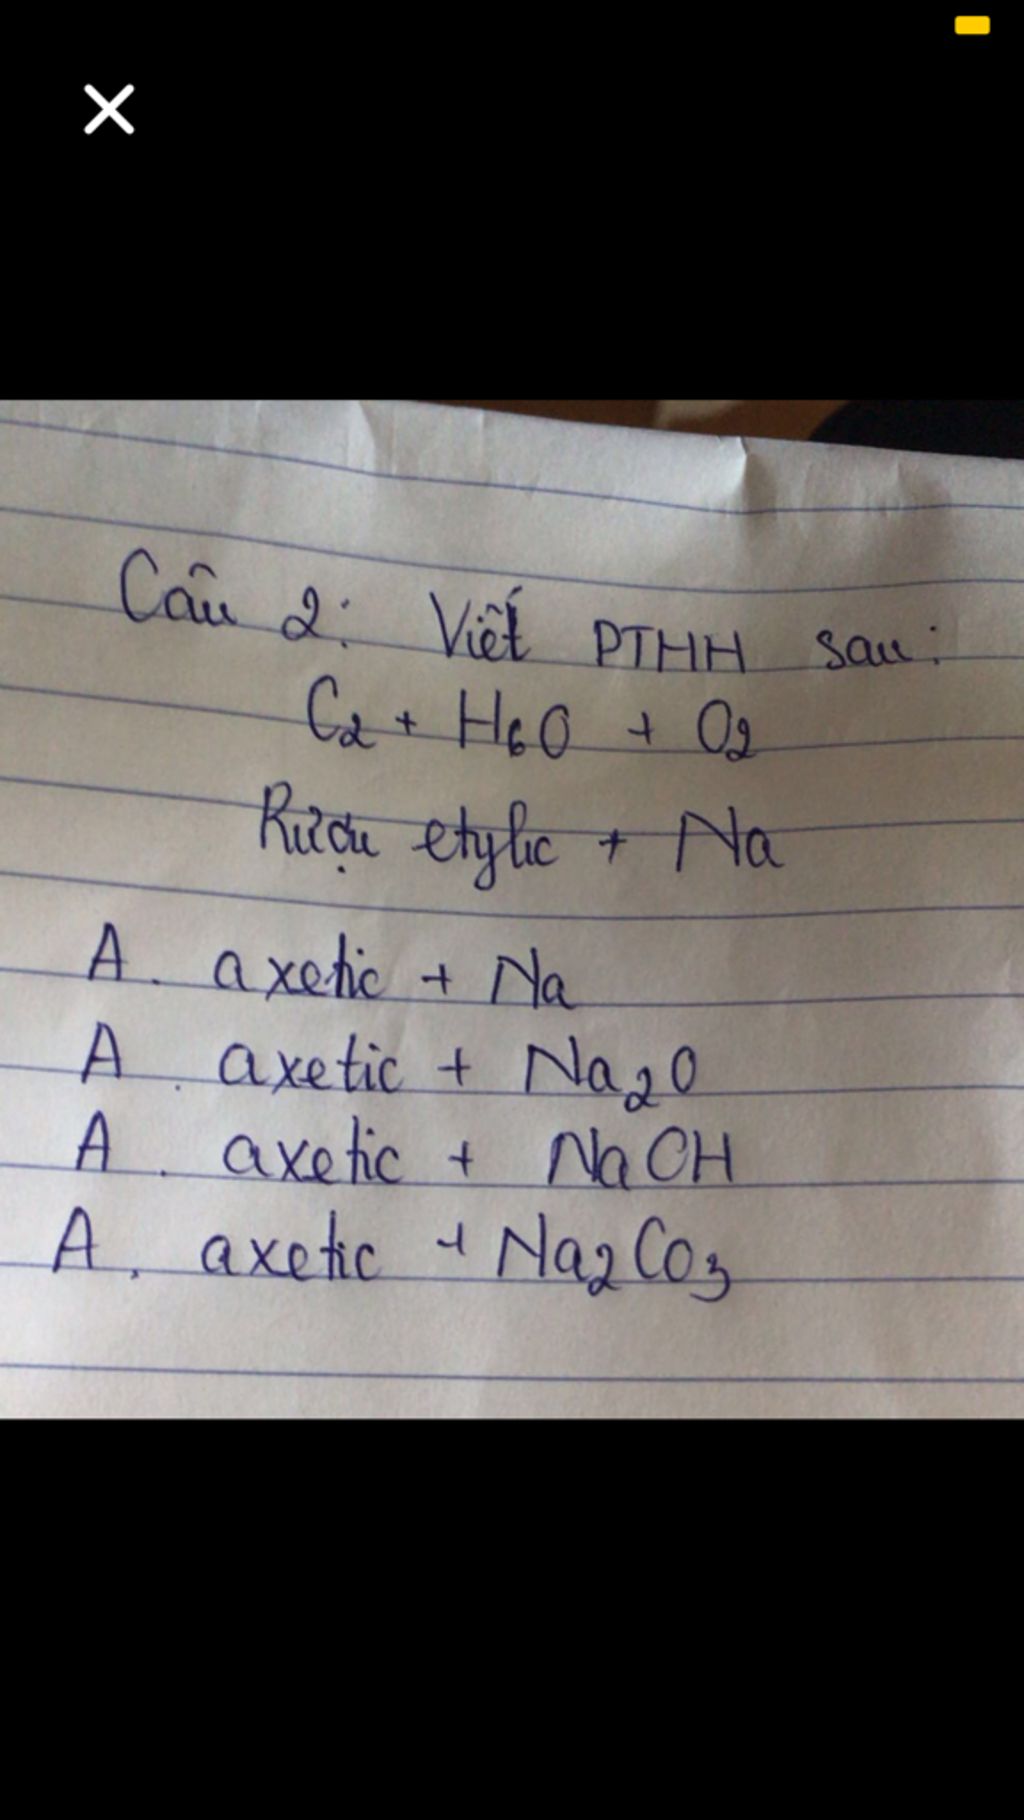 Câu 2: Viết PTHH sau:
C2 + H6O + O2
Rượu etylic + Na
A. axetic + Na
A. axetic + Na2O
A. axetic + NaOH
A. axetic + Na2CO3